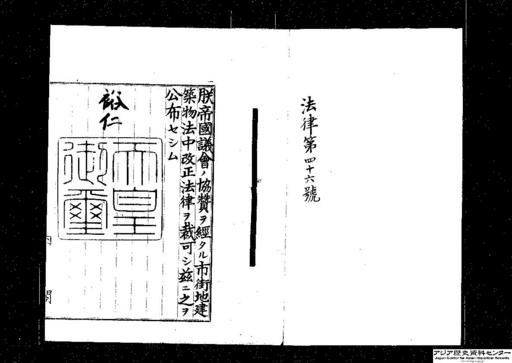 法律第四十六號
朕帝國議會ノ協贊ヲ經タル市街地建
築物法中改正法律ヲ裁可シ茲ニ之ヲ
公布セシム
裕仁
天皇
御璽
内閣
アジア歴史資料センター
Japan Center for Asian Historical Records